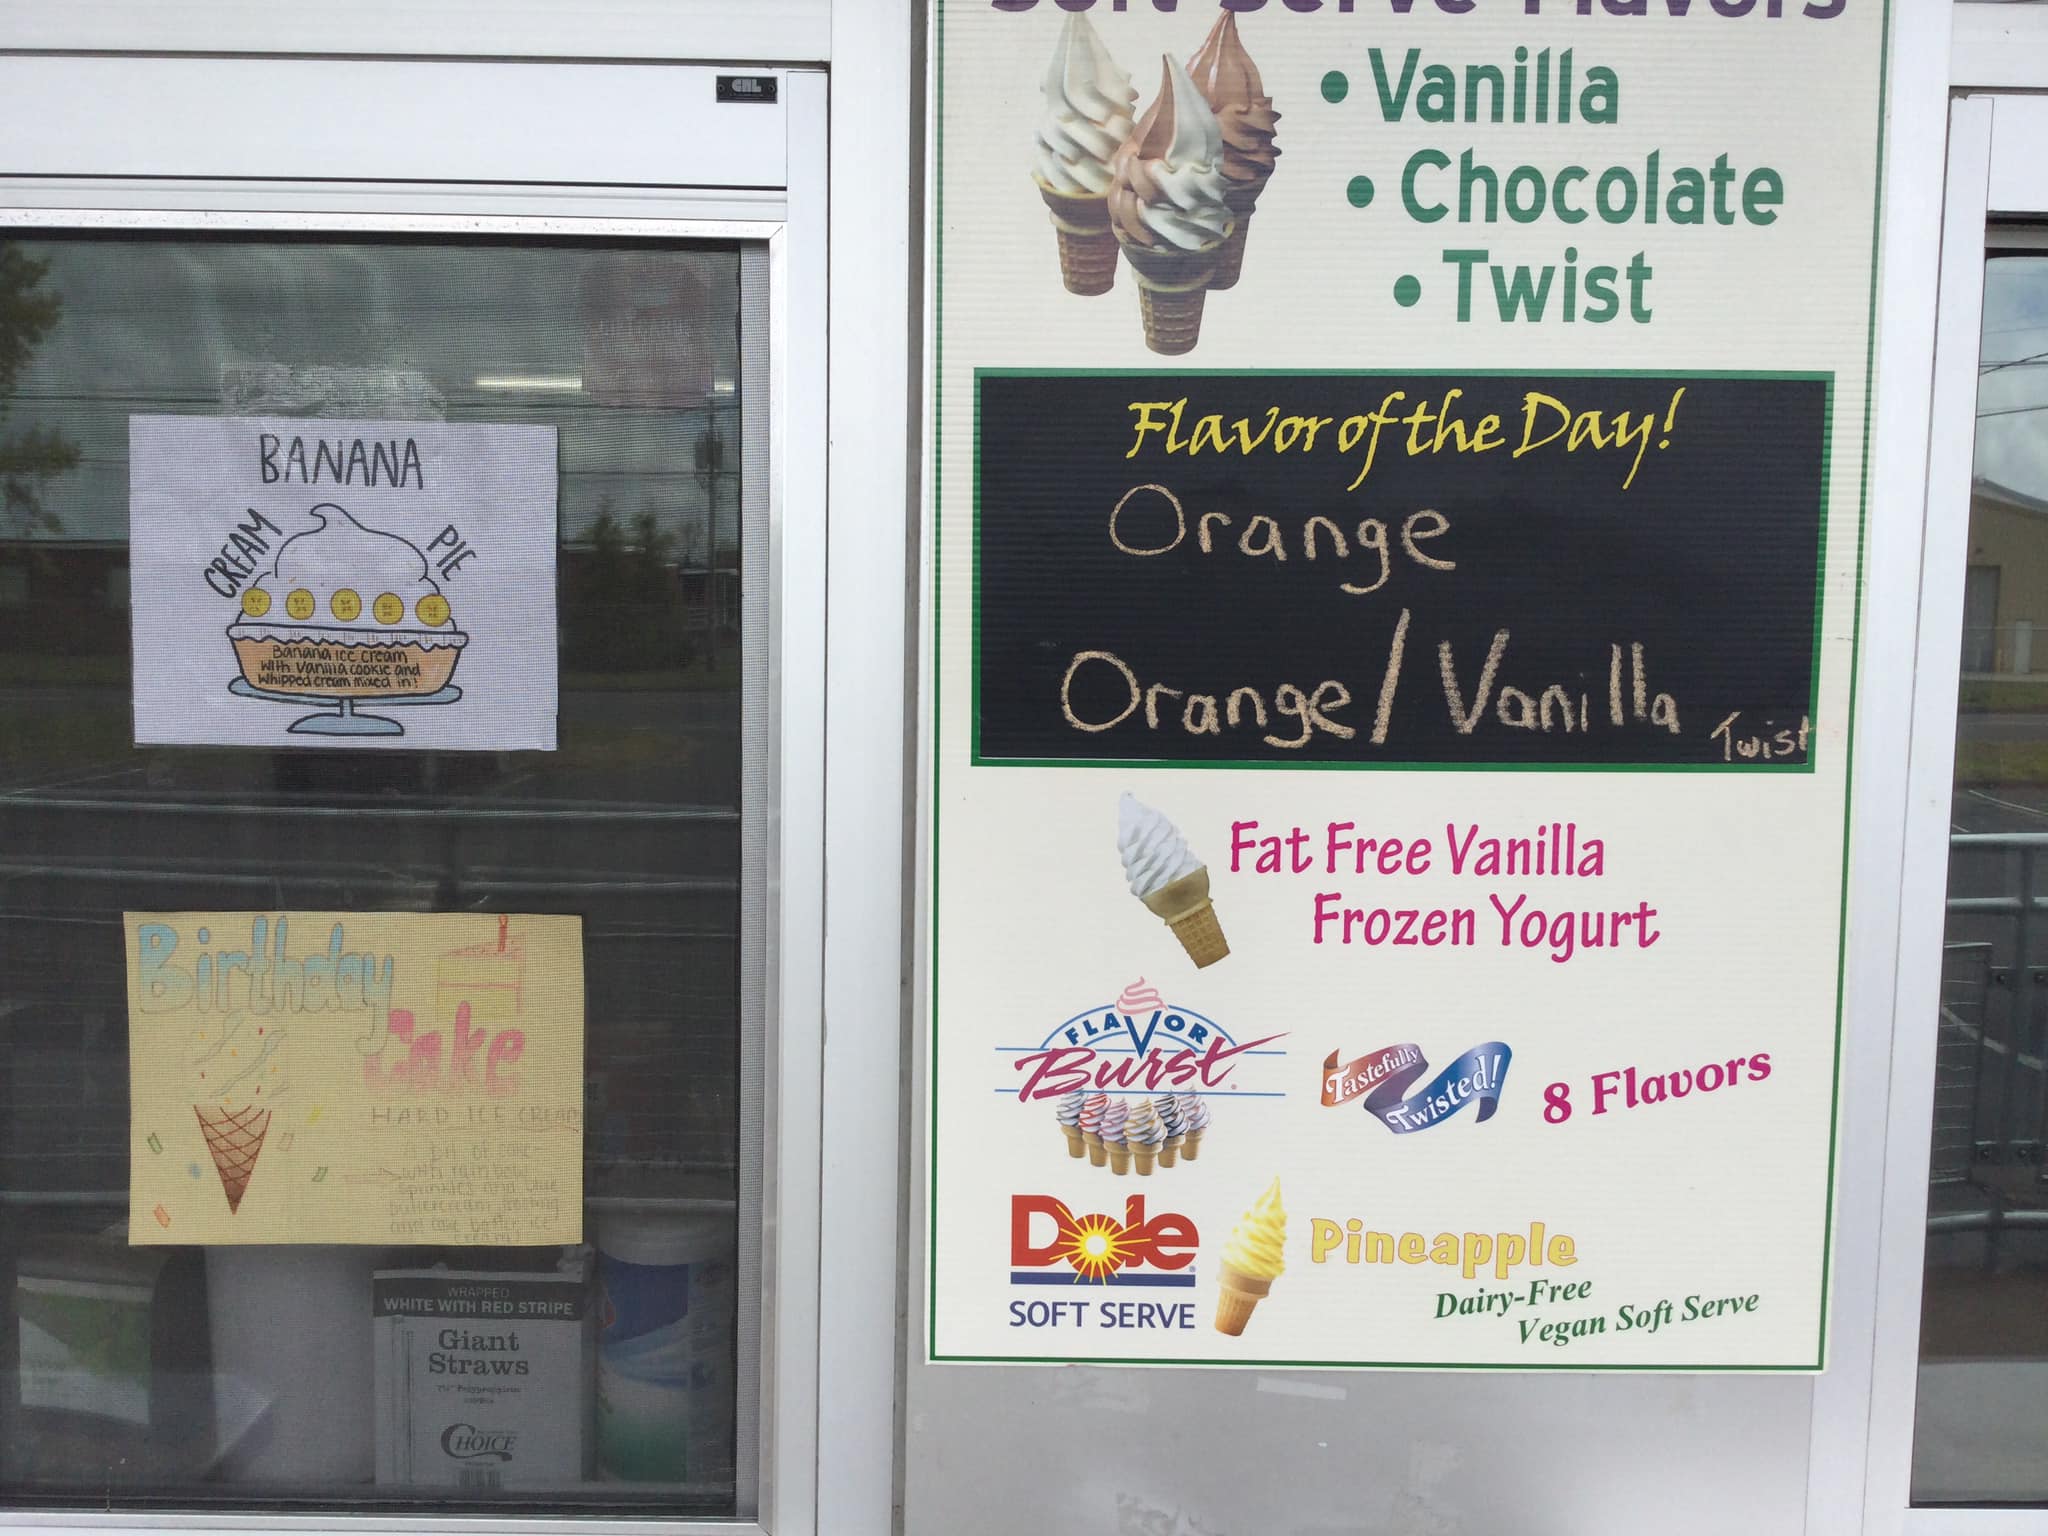 CRL
BANANA
CREAM PIE
Banana ice cream
with vanilla cookie and
whipped cream mixed in!
Birthday
Cake
HARD ICE CREAM
with rainbow
sprinkles and blue
buttercream frosting
and cake batter ice
cream!
WRAPPED
WHITE WITH RED STRIPE
Giant
Straws
CHOICE
Soft Serve Flavors
• Vanilla
• Chocolate
• Twist
Flavor of the Day!
Orange
Orange/Vanilla Twist
Fat Free Vanilla
Frozen Yogurt
FLAVOR
Burst
Tastefully
Twisted!
8 Flavors
Dole
SOFT SERVE
Pineapple
Dairy-Free
Vegan Soft Serve